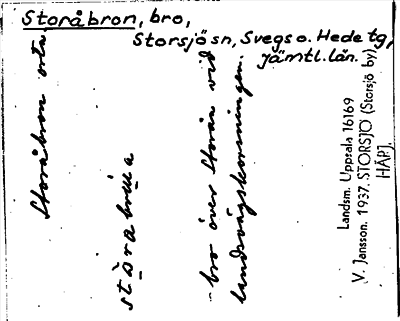 Storåbron, bro,
Storsjö sn, Svegs o. Hede tg,
Jämtl. län.
Storåbron ortn.
bro över Storån vid
landsvägskorsningen.
Landsm. Uppsala 16169
V. Jansson. 1937. STORSJÖ (Storsjö by)
HÄPJ.